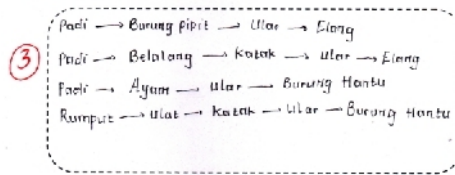 3
Padi → Burung pipit → Ular → Elang
Padi → Belalang → Katak → Ular → Elang
Padi → Ayam → Ular → Burung Hantu
Rumput → Ulat → Katak → Ular → Burung Hantu